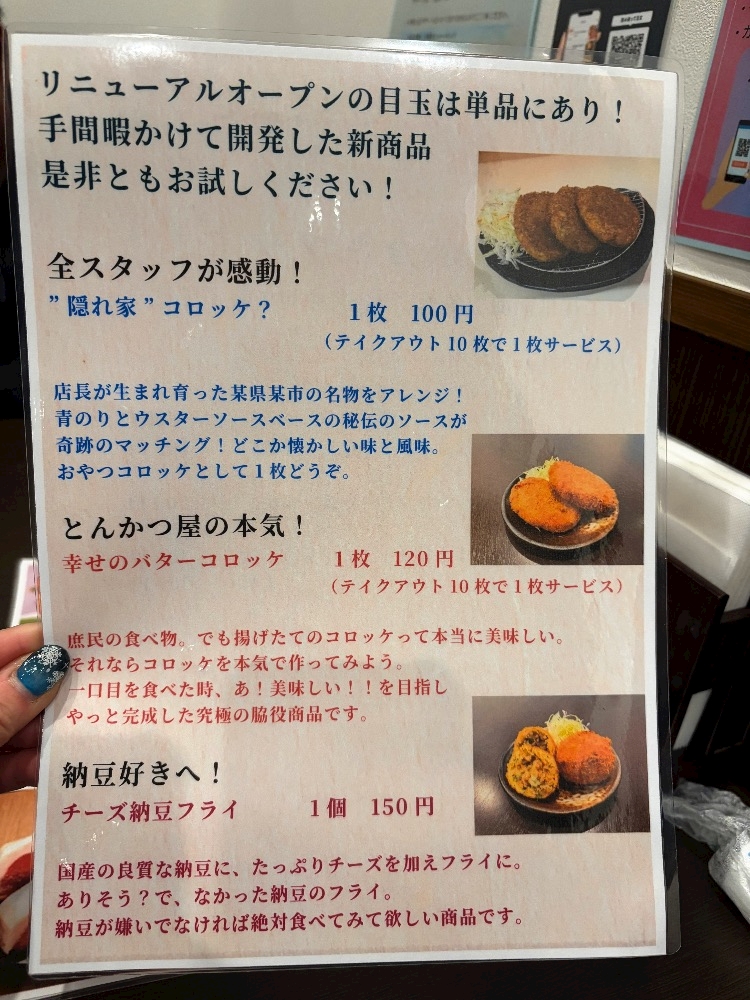 リニューアルオープンの目玉は単品にあり！
手間暇かけて開発した新商品
是非ともお試しください！
全スタッフが感動！
”隠れ家”コロッケ？ 1枚 100円
（テイクアウト10枚で1枚サービス）
店長が生まれ育った某県某市の名物をアレンジ！
青のりとウスターソースベースの秘伝のソースが
奇跡のマッチング！どこか懐かしい味と風味。
おやつコロッケとして1枚どうぞ。
とんかつ屋の本気！
幸せのバターコロッケ 1枚 120円
（テイクアウト10枚で1枚サービス）
庶民の食べ物。でも揚げたてのコロッケって本当に美味しい。
それならコロッケを本気で作ってみよう。
一口目を食べた時、あ！美味しい！！を目指し
やっと完成した究極の脇役商品です。
納豆好きへ！
チーズ納豆フライ 1個 150円
国産の良質な納豆に、たっぷりチーズを加えフライに。
ありそう？で、なかった納豆のフライ。
納豆が嫌いでなければ絶対食べてみて欲しい商品です。